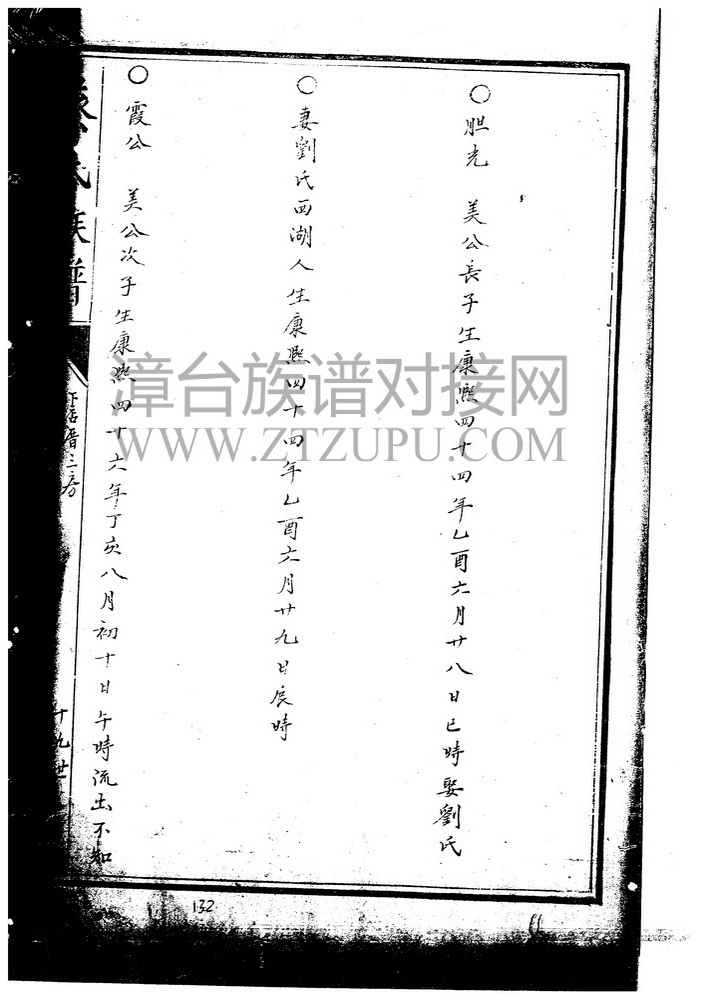 ○胆光 美公長子生康熙四十四年乙酉六月廿八日巳時娶劉氏
○妻劉氏西湖人生康熙四十四年乙酉六月廿九日辰時
○霞公 美公次子生康熙四十六年丁亥八月初十日午時流出不知
氏族譜
三房
十九世
漳台族谱对接网
WWW.ZTZUPU.COM
132